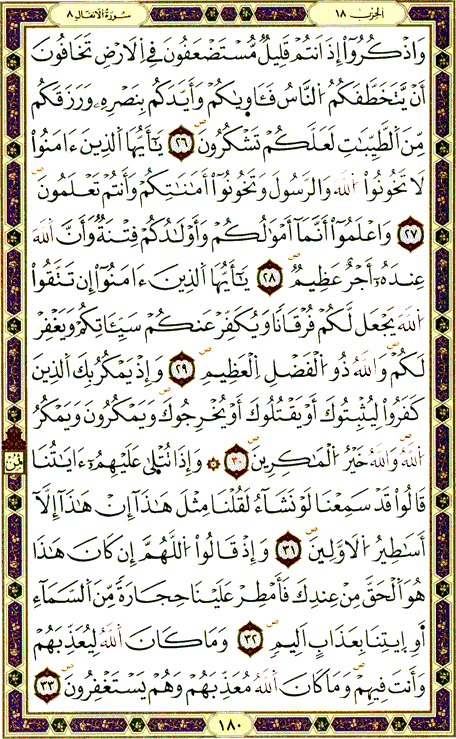 الحزب ١٨ سورة الانفال ٨
وَاذْكُرُوٓا۟ إِذْ أَنتُمْ قَلِيلٌ مُّسْتَضْعَفُونَ فِى الْأَرْضِ تَخَافُونَ
أَنْ يَّتَخَطَّفَكُمُ النَّاسُ فَـَٔاوَىٰكُمْ وَأَيَّدَكُم بِنَصْرِهِۦ وَرَزَقَكُم
مِّنَ الطَّيِّبَٰتِ لَعَلَّكُمْ تَشْكُرُونَ ٢٦ يَٰٓأَيُّهَا الَّذِينَ ءَامَنُوا۟
لَا تَخُونُوا۟ اللَّهَ وَالرَّسُولَ وَتَخُونُوٓا۟ أَمَٰنَٰتِكُمْ وَأَنتُمْ تَعْلَمُونَ
٢٧ وَاعْلَمُوٓا۟ أَنَّمَآ أَمْوَٰلُكُمْ وَأَوْلَٰدُكُمْ فِتْنَةٌ وَأَنَّ اللَّهَ
عِندَهُۥٓ أَجْرٌ عَظِيمٌ ٢٨ يَٰٓأَيُّهَا الَّذِينَ ءَامَنُوٓا۟ إِن تَتَّقُوا۟
اللَّهَ يَجْعَل لَّكُمْ فُرْقَانًا وَيُكَفِّرْ عَنكُمْ سَيِّـَٔاتِكُمْ وَيَغْفِرْ
لَكُمْ وَاللَّهُ ذُو الْفَضْلِ الْعَظِيمِ ٢٩ وَإِذْ يَمْكُرُ بِكَ الَّذِينَ
كَفَرُوا۟ لِيُثْبِتُوكَ أَوْ يَقْتُلُوكَ أَوْ يُخْرِجُوكَ وَيَمْكُرُونَ وَيَمْكُرُ
اللَّهُ وَاللَّهُ خَيْرُ الْمَٰكِرِينَ ٣٠ وَإِذَا تُتْلَىٰ عَلَيْهِمُۥٓ ءَايَٰتُنَا
قَالُوا۟ قَدْ سَمِعْنَا لَوْ نَشَآءُ لَقُلْنَا مِثْلَ هَٰذَآ إِنْ هَٰذَآ إِلَّآ
أَسَٰطِيرُ الْأَوَّلِينَ ٣١ وَإِذْ قَالُوا۟ اللَّهُمَّ إِن كَانَ هَٰذَا
هُوَ الْحَقَّ مِنْ عِندِكَ فَأَمْطِرْ عَلَيْنَا حِجَارَةً مِّنَ السَّمَآءِ
أَوِ ائْتِنَا بِعَذَابٍ أَلِيمٍ ٣٢ وَمَا كَانَ اللَّهُ لِيُعَذِّبَهُمْ
وَأَنتَ فِيهِمْ وَمَا كَانَ اللَّهُ مُعَذِّبَهُمْ وَهُمْ يَسْتَغْفِرُونَ ٣٣
١٨٠